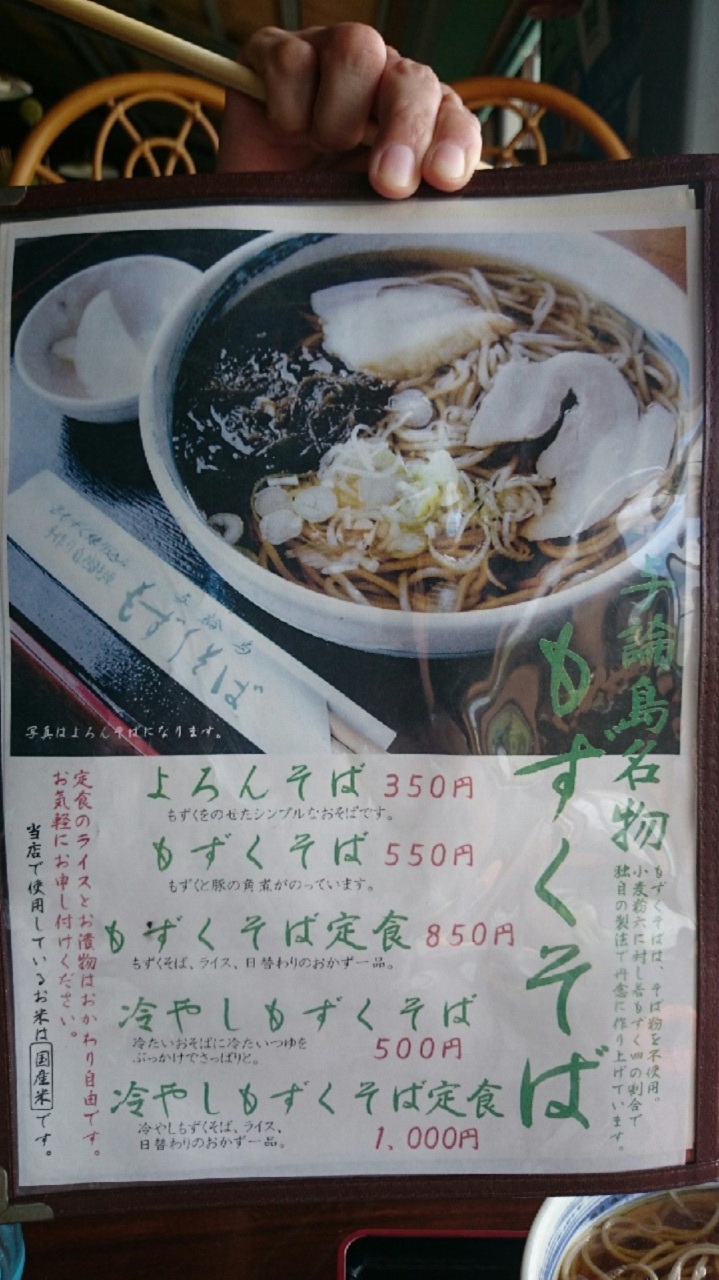 与論島名物
もずくそば
もずくそばは、そば粉を不使用。
小麦粉六に対し若もずく四の割合で
独自の製法で丹念に作り上げています。
もずくそば
写真はよろんそばになります。
よろんそば 350円
もずくをのせたシンプルなおそばです。
もずくそば 550円
もずくと豚の角煮がのっています。
もずくそば定食 850円
もずくそば、ライス、日替わりのおかず一品。
冷やしもずくそば
冷たいおそばに冷たいつゆを
ぶっかけでさっぱりと。
500円
冷やしもずくそば定食
冷やしもずくそば、ライス、
日替わりのおかず一品。
1,000円
定食のライスとお漬物はおかわり自由です。
お気軽にお申し付けください。
当店で使用しているお米は国産米です。